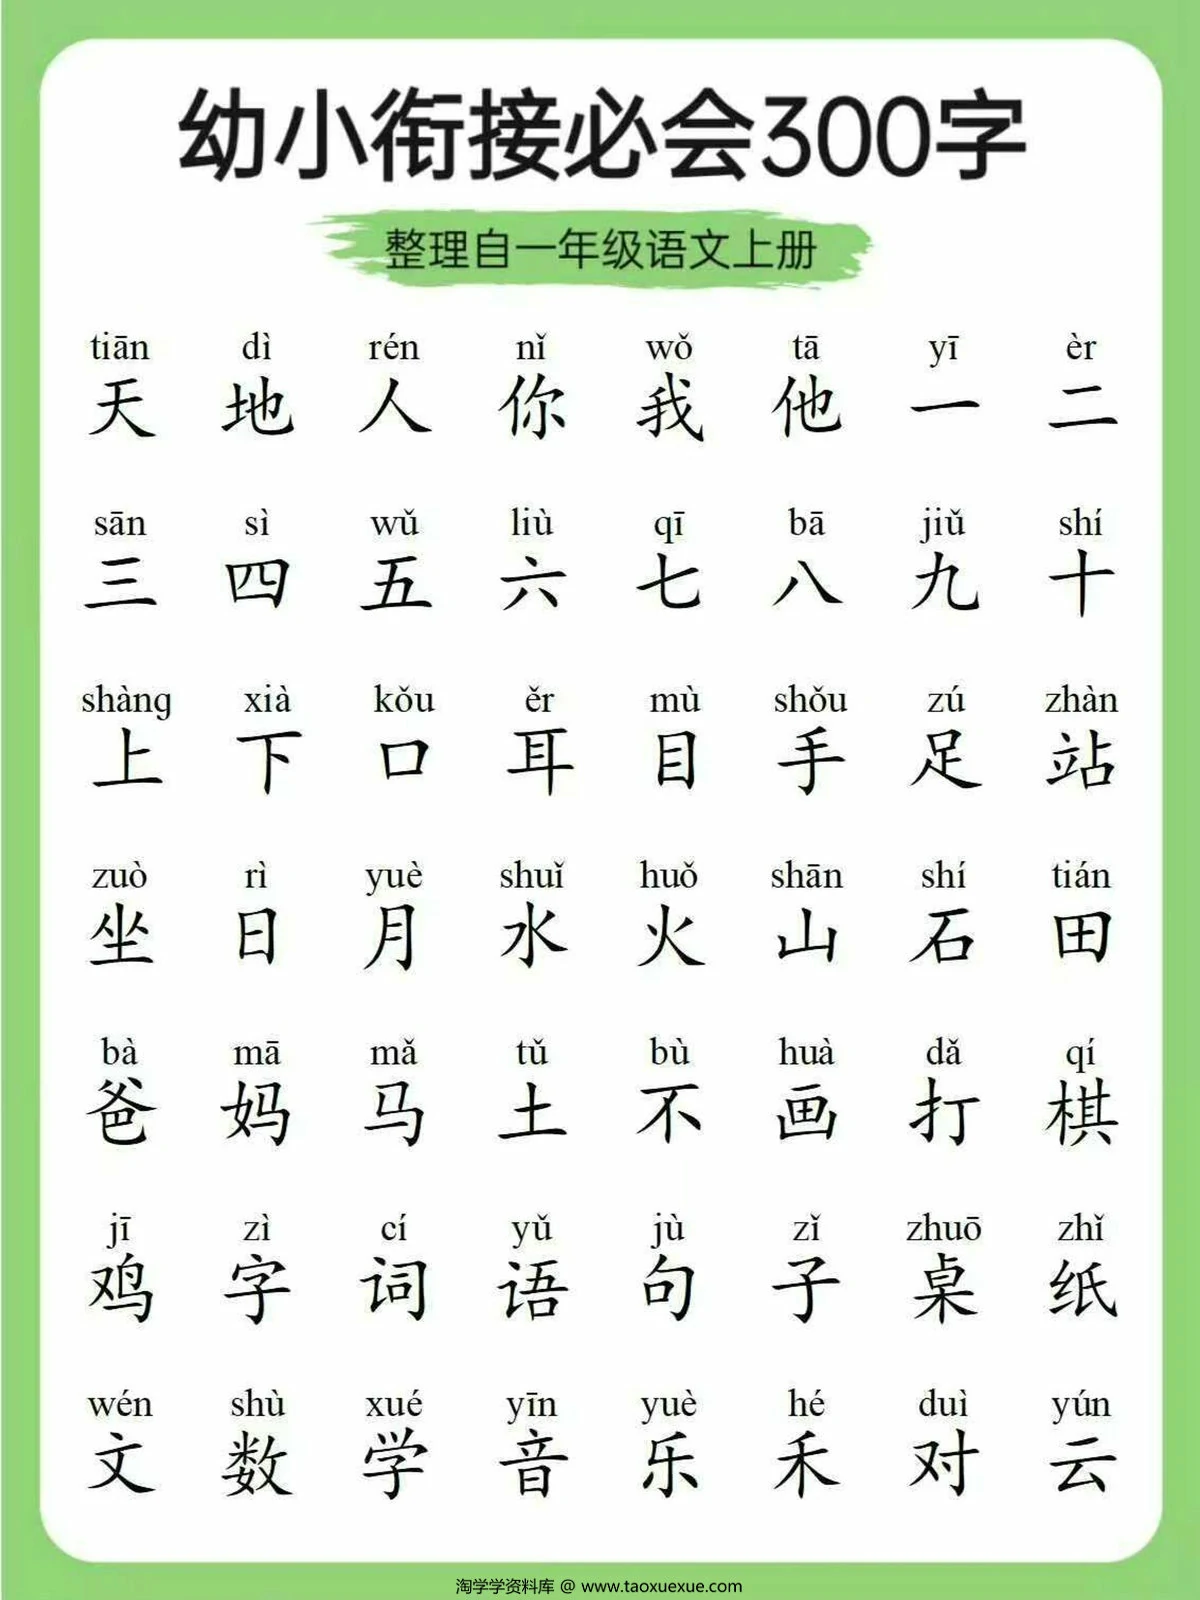 幼小衔接必会300字
整理自一年级语文上册
tiān dì rén nǐ wǒ tā yī èr
天 地 人 你 我 他 一 二
sān sì wǔ liù qī bā jiǔ shí
三 四 五 六 七 八 九 十
shàng xià kǒu ěr mù shǒu zú zhàn
上 下 口 耳 目 手 足 站
zuò rì yuè shuǐ huǒ shān shí tián
坐 日 月 水 火 山 石 田
bà mā mǎ tǔ bù huà dǎ qí
爸 妈 马 土 不 画 打 棋
jī zì cí yǔ jù zǐ zhuō zhǐ
鸡 字 词 语 句 子 桌 纸
wén shù xué yīn yuè hé duì yún
文 数 学 音 乐 禾 对 云
淘学学资料库 @ www.taoxuexue.com